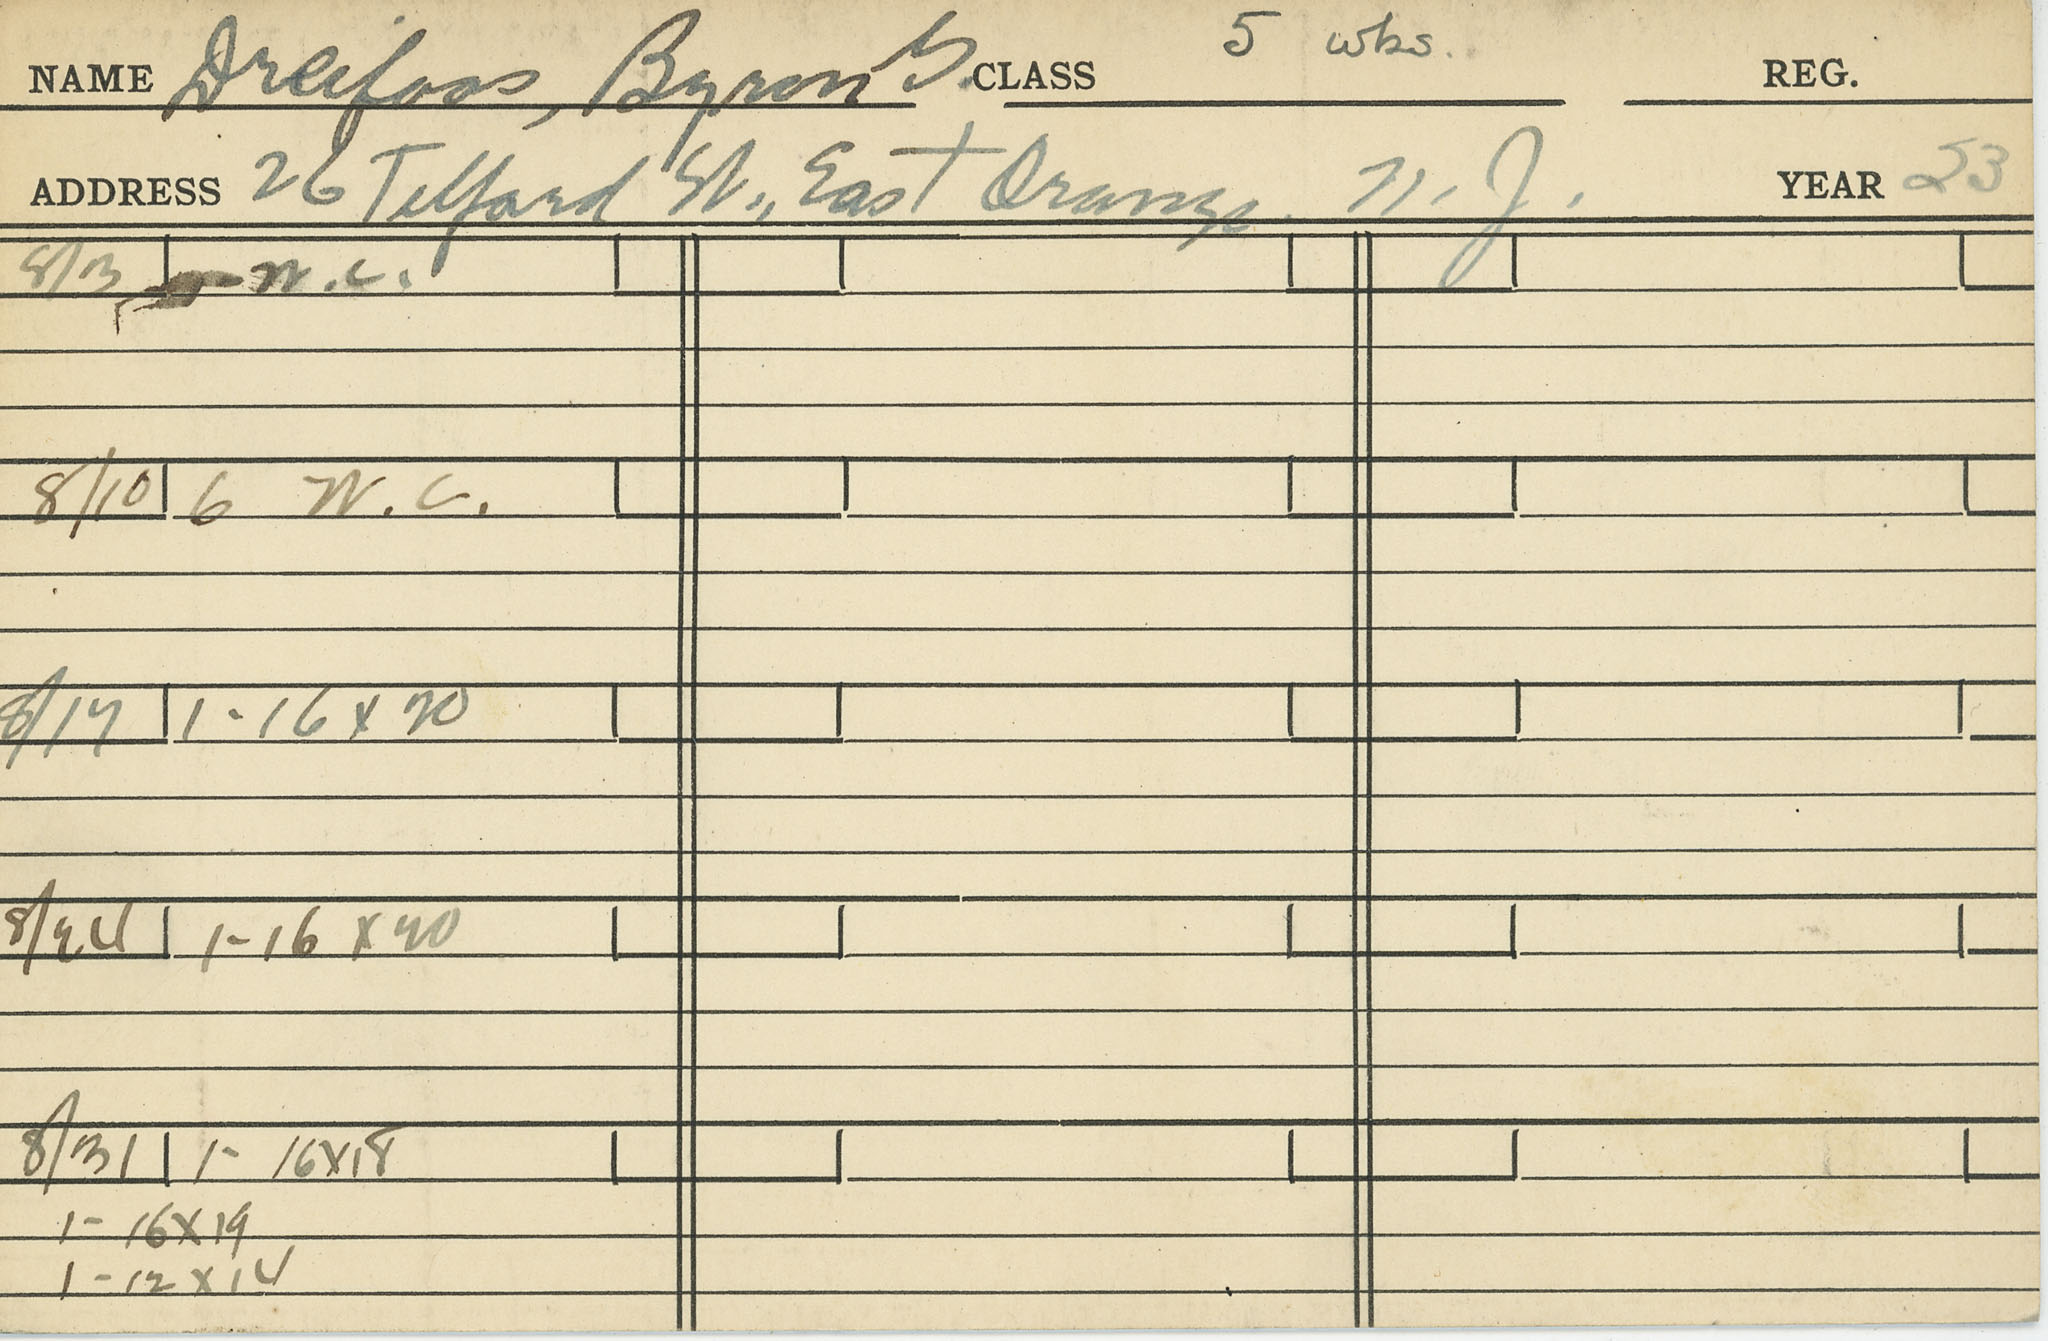 NAME Dreifoos, Byron G. CLASS 5 wks. REG.
ADDRESS 26 Telford St., East Orange, N. J. YEAR 53
8/3 W.C.
8/10 6 W.C.
8/17 1-16 x 20
8/24 1-16 x 20
8/31 1- 16x18
1- 16x19
1-12x14